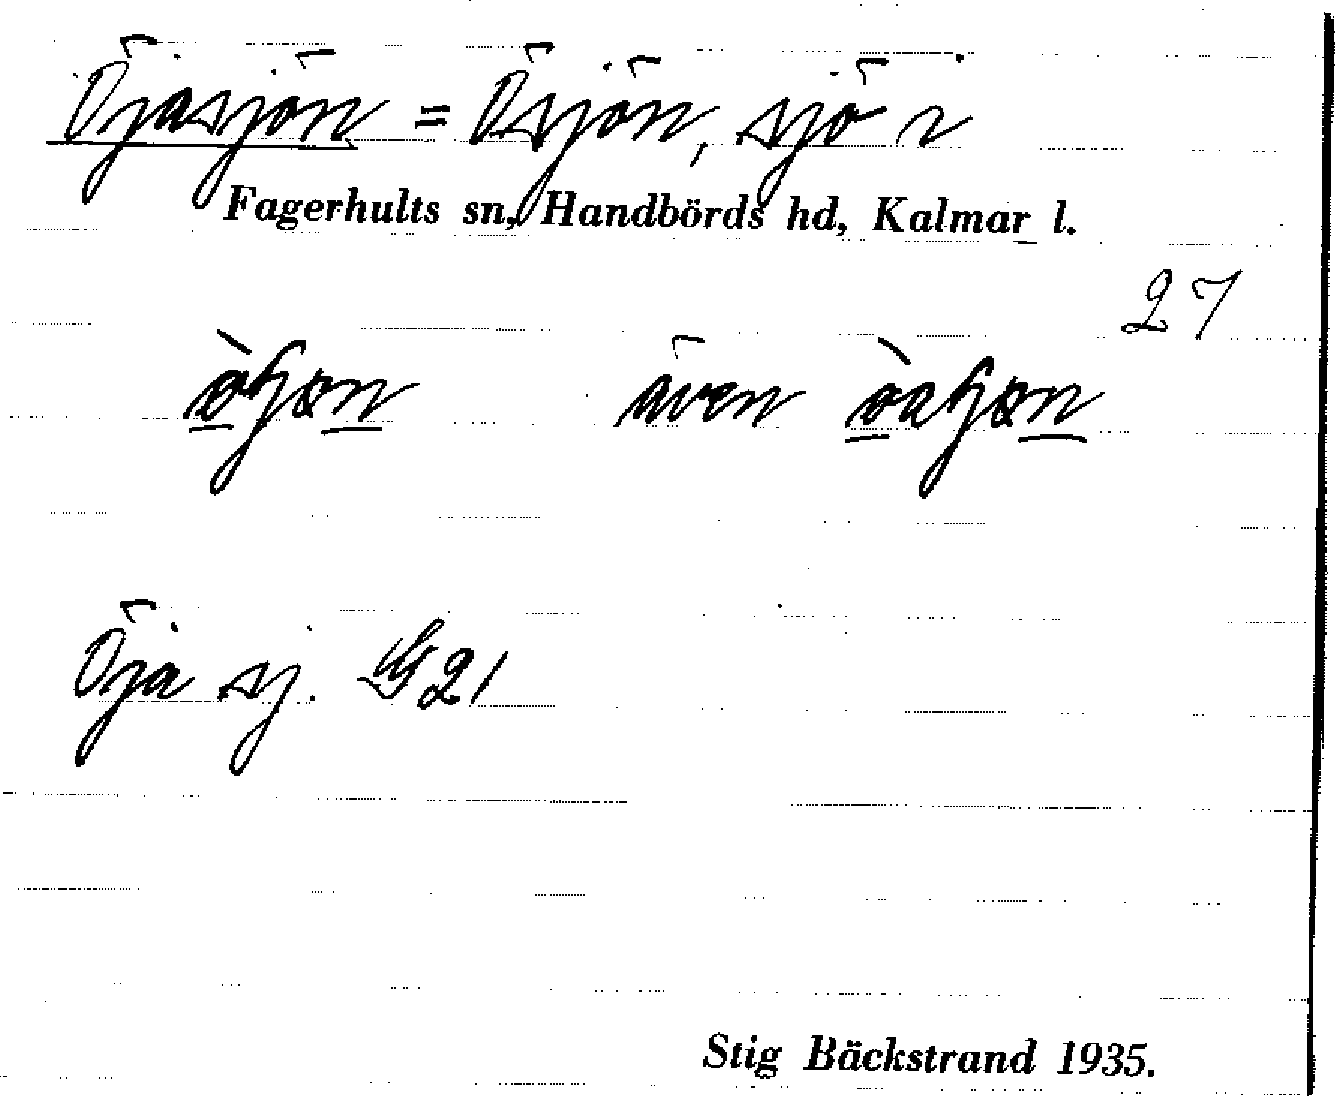 Öjasjön = Ösjön, sjö i
Fagerhults sn, Handbörds hd, Kalmar l.
27
även
Öja sj. G21
Stig Bäckstrand 1935.